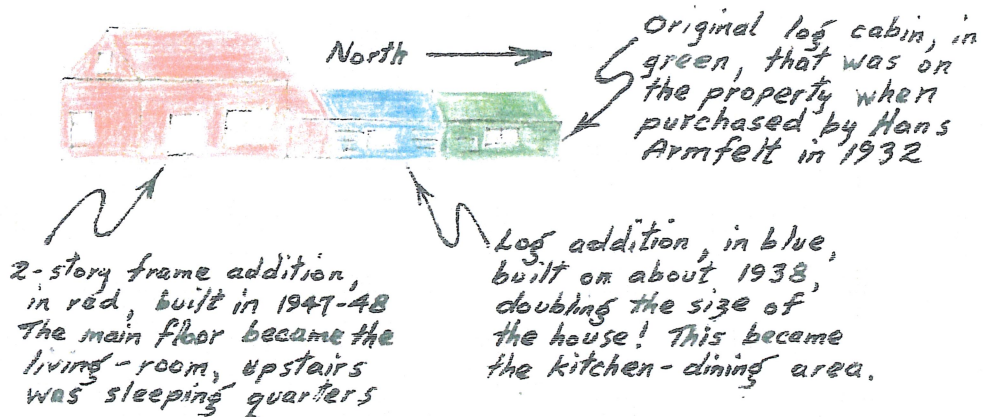 North
Original log cabin, in
green, that was on
the property when
purchased by Hans
Armfelt in 1932
2-story frame addition,
in red, built in 1947-48
The main floor became the
living-room, upstairs
was sleeping quarters
Log addition, in blue,
built on about 1938,
doubling the size of
the house! This became
the kitchen-dining area.